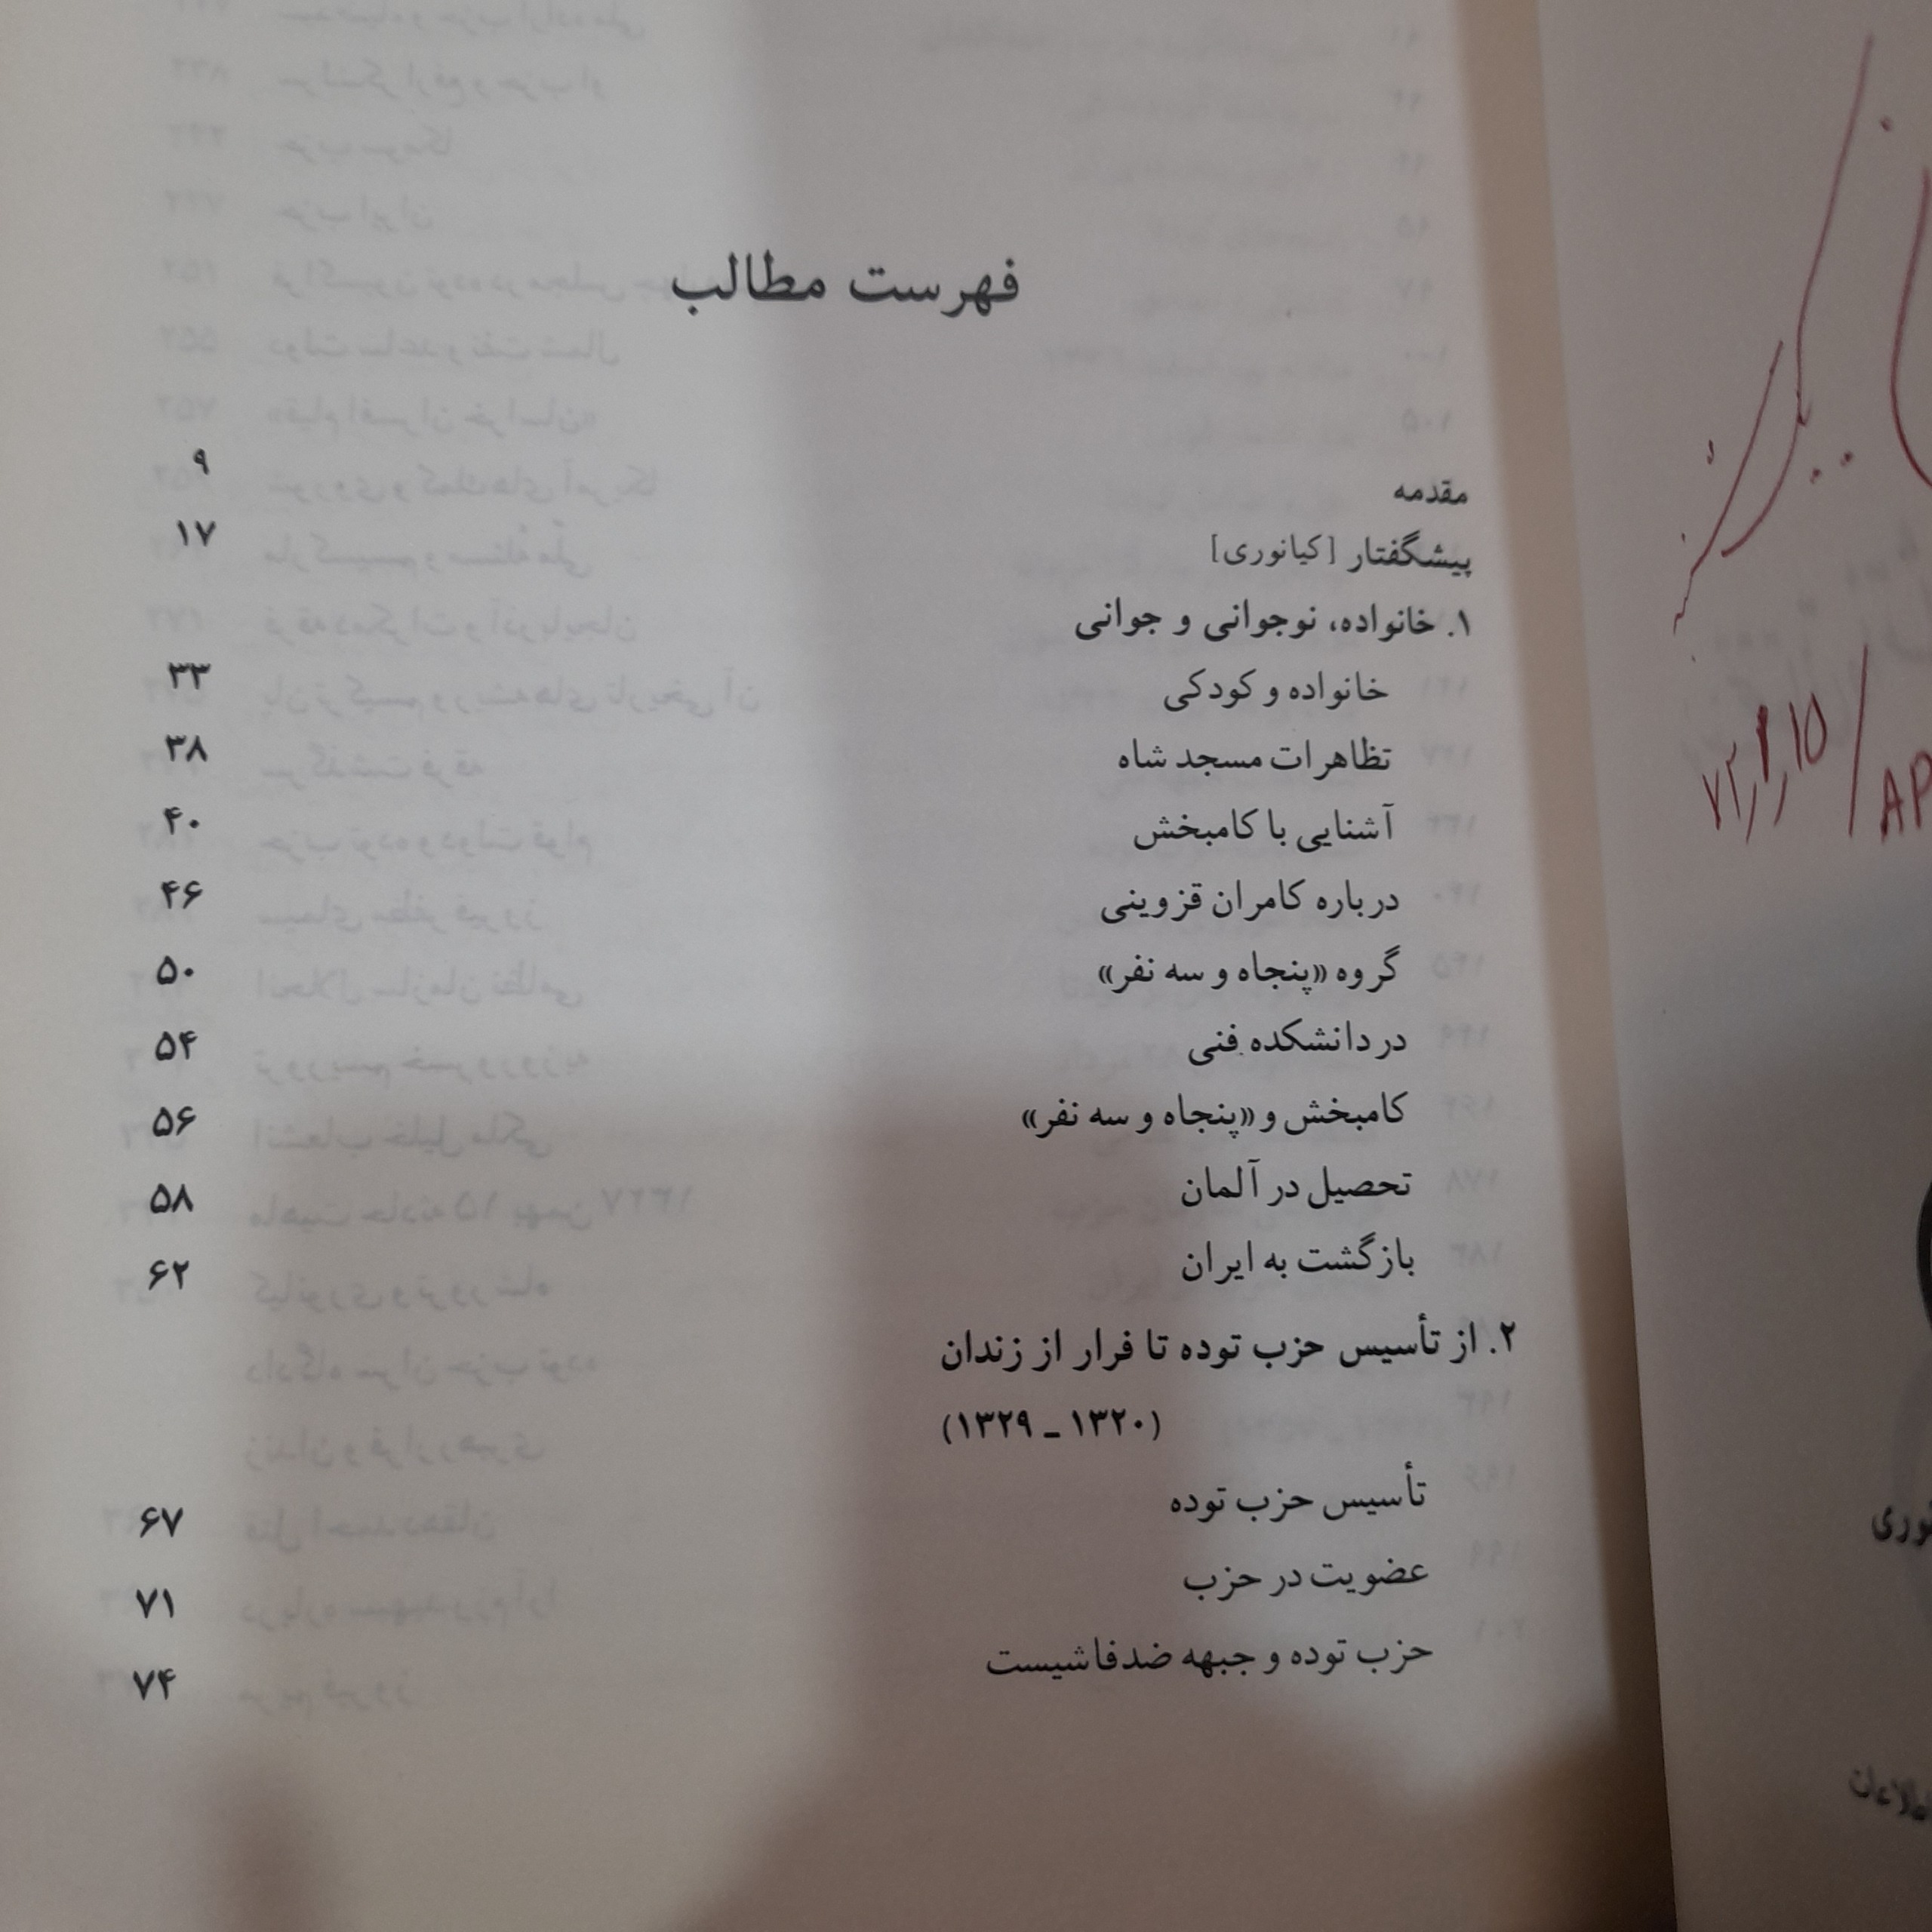 فهرست مطالب
مقدمه ۹
پیشگفتار [کیانوری] ۱۷
۱. خانواده، نوجوانی و جوانی
خانواده و کودکی ۳۳
تظاهرات مسجد شاه ۳۸
آشنایی با کامبخش ۴۰
درباره کامران قزوینی ۴۶
گروه «پنجاه و سه نفر» ۵۰
در دانشکده فنی ۵۴
کامبخش و «پنجاه و سه نفر» ۵۶
تحصیل در آلمان ۵۸
بازگشت به ایران ۶۲
۲. از تأسیس حزب توده تا فرار از زندان
(۱۳۲۰ ـ ۱۳۲۹)
تأسیس حزب توده ۶۷
عضویت در حزب ۷۱
حزب توده و جبهه ضدفاشیست ۷۴